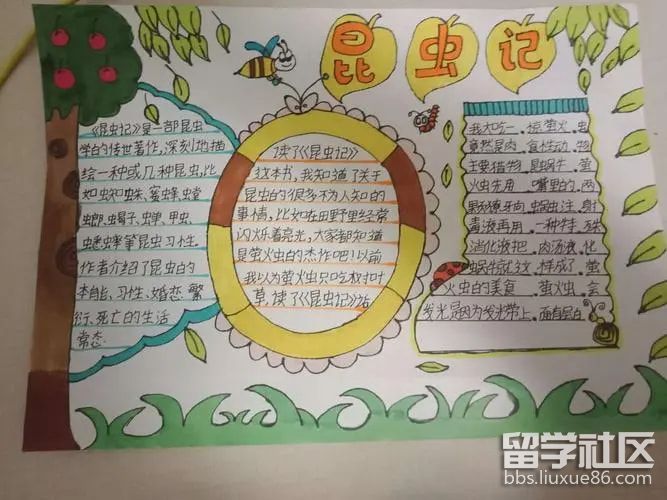 昆虫记
《昆虫记》是一部昆虫
学的传世著作,深刻地描
绘一种或几种昆虫,比
如蜘蛛、蜜蜂、螳
螂、蝎子、蝉、甲虫、
蟋蟀等昆虫习性。
作者介绍了昆虫的
本能、习性、婚恋、繁
衍、死亡的生活
常态
读了《昆虫记》
这本书,我知道了关于
昆虫的很多不为人知的
事情,比如在田野里经常
闪烁着亮光,大家都知道
是萤火虫的杰作吧!以前
我以为萤火虫只吃树叶
草,读了《昆虫记》
我大吃一惊,萤火虫
竟然是肉食性动物
主要猎物是蜗牛,萤
火虫先用嘴里的两
颗獠牙向蜗牛注射
毒液再用一种特殊
消化液把肉汤液化
蜗牛就这样成了萤
火虫的美食 萤火虫会
发光是因为发光带上面有层白
留学社区
bbs.liuxue86.com